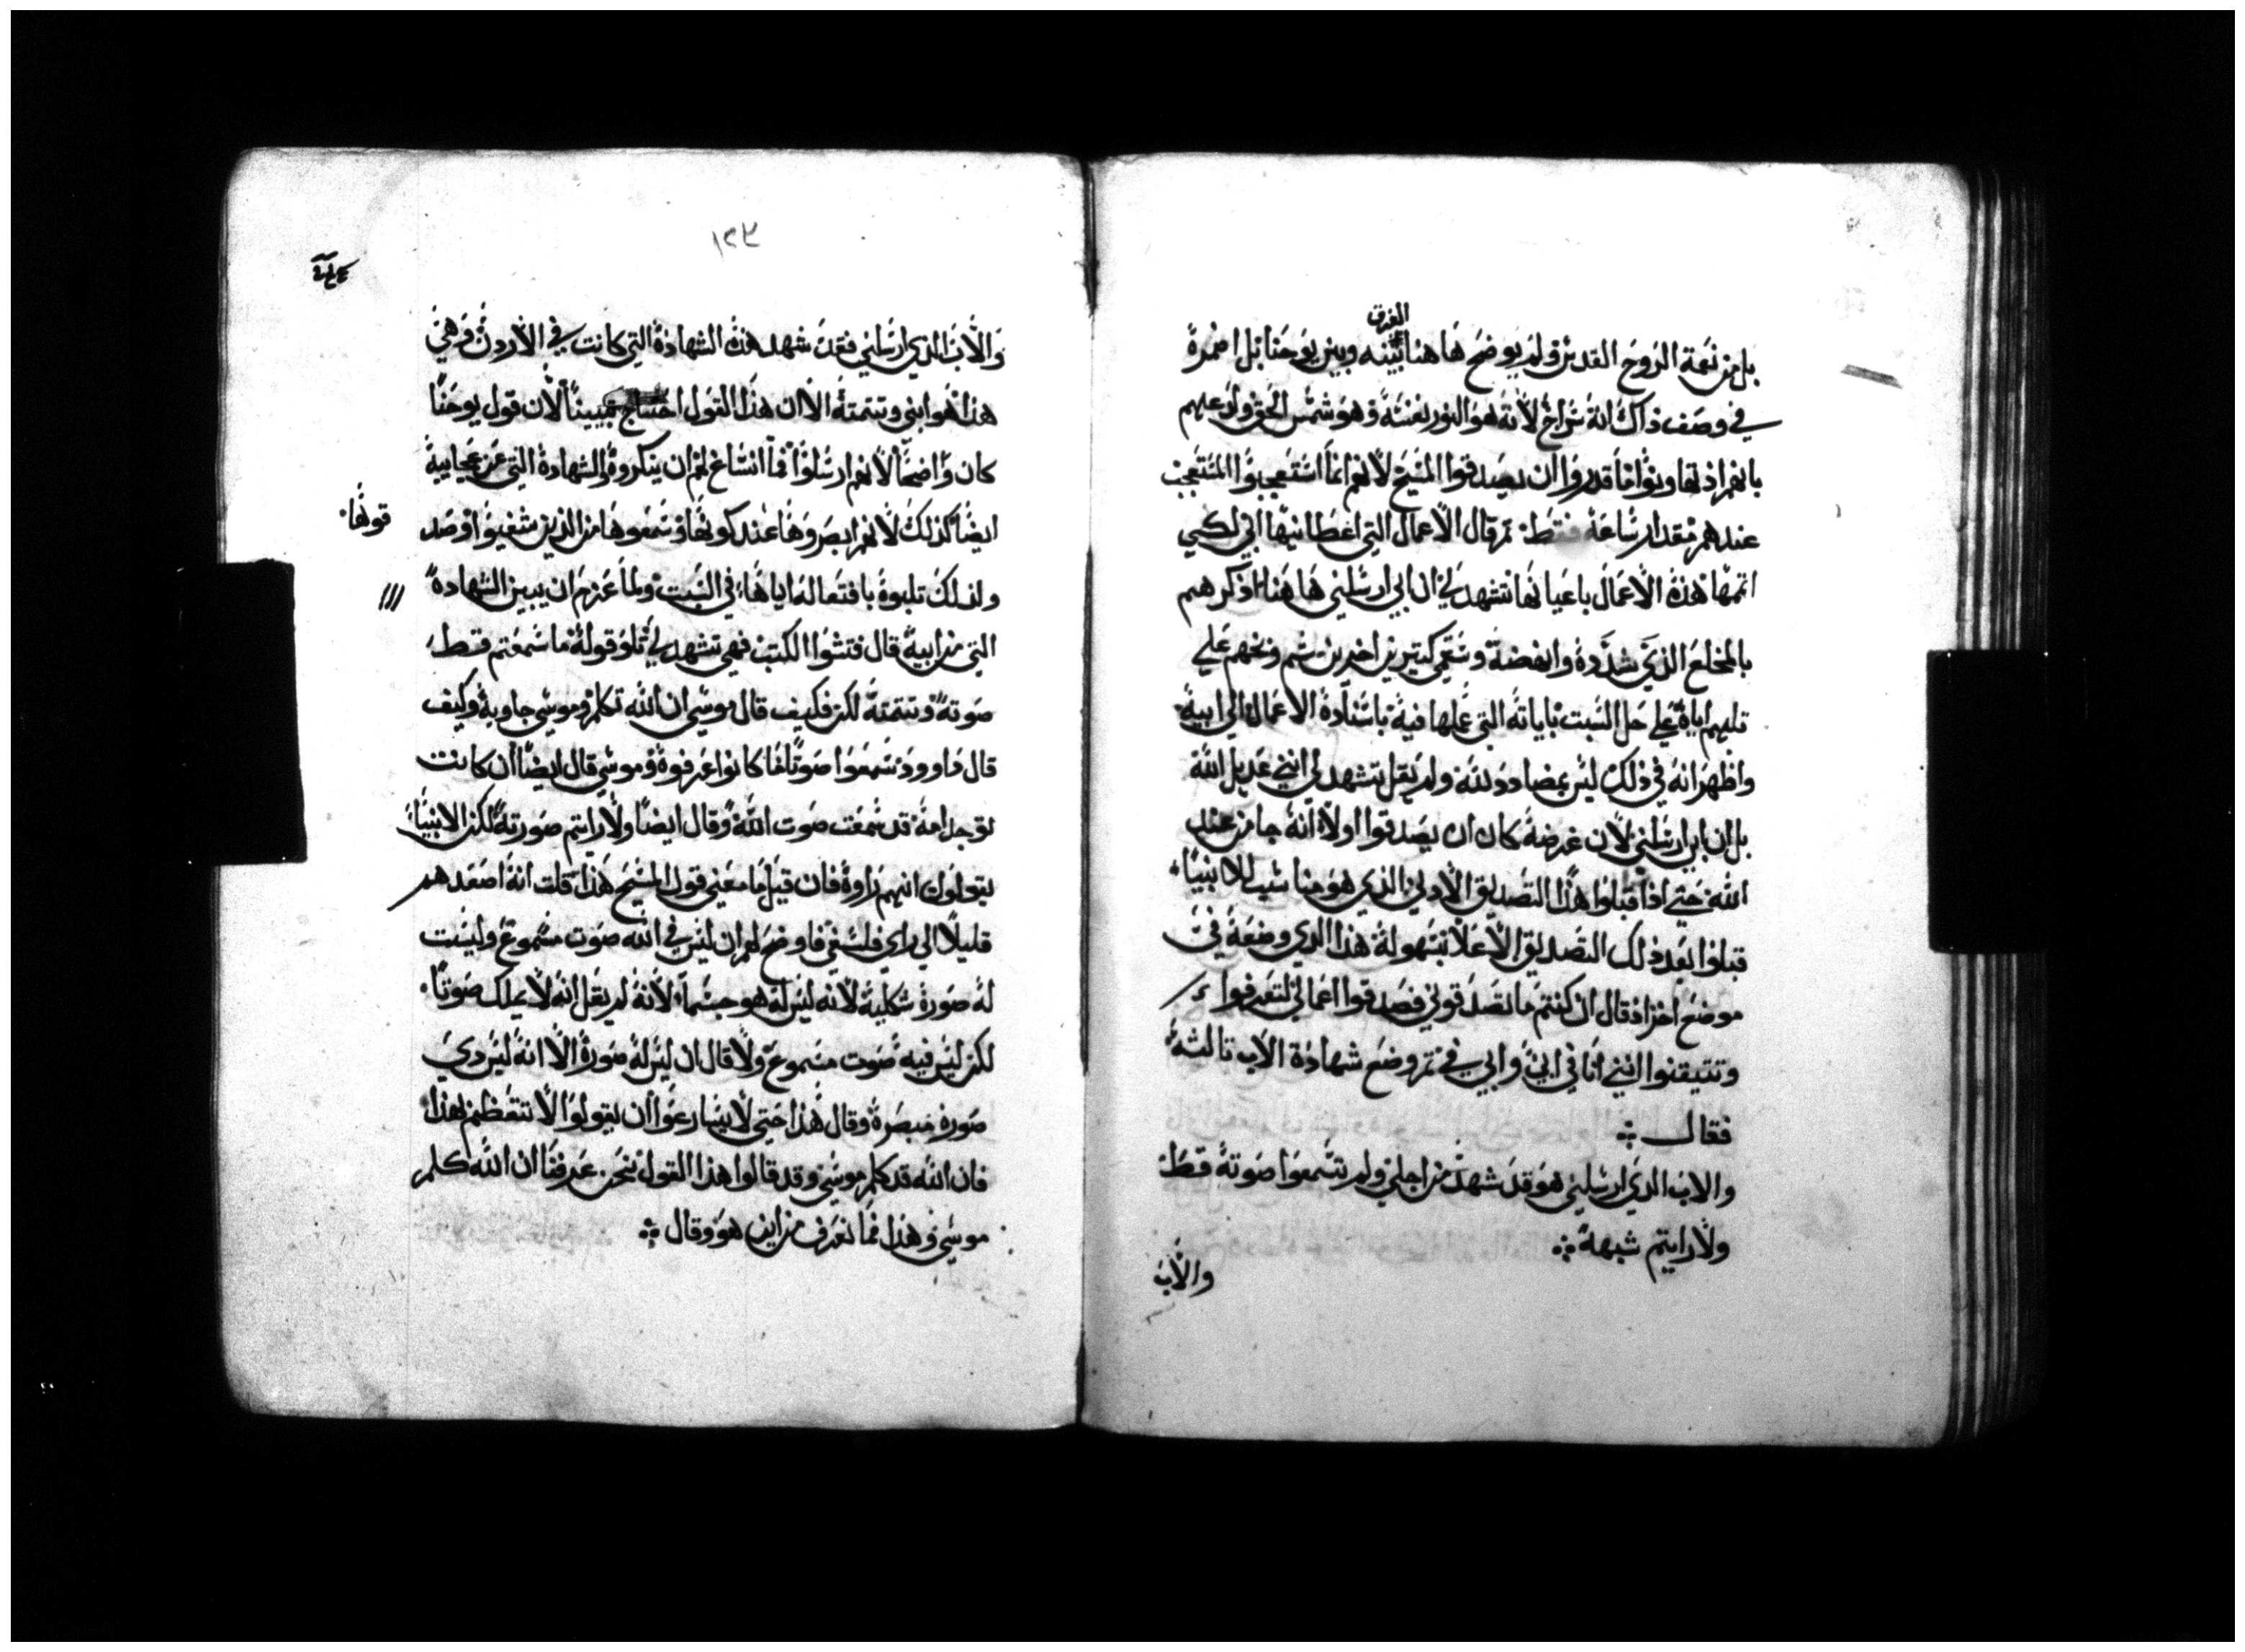 الفرق
بل من نعمة الروح القدس ولم يوضح هاهنا بينه وبين يوحنا بل اضمره
في وصف ذاك انه سراج لانه هو النور نفسه وهو شمس الحق ولذعهم
بانهم اذ تهاونوا ما قدروا ان يصدقوا المسيح لانهم انما استعجبوا المتعجب
عندهم مقدار ساعة فقط ثم قال الاعمال التي اعطانيها ابي لكي
اتمها هذه الاعمال باعيانها تشهد لي ان ابي ارسلني هاهنا اذكرهم
بالمخلع الذي شدده وانهضه وسقمي كتيرين اخرين منهم ونخهم علي
تلبهم اياه علي حل السبت باياته التي عملها فيه باسناده الاعمال الي ابيه
واظهر انه في ذلك ليس بمضادد لله ولم يقل تشهد لي انني عديل الله
بل ان ابي ارسلني لان غرضه كان ان يصدقوا اولا انه جا من عند
الله حتي اذا قبلوا هذا التصديق الادني الذي هو مناسب للانبياء
قبلوا بعد ذلك التصديق الاعلا بسهولة هذا الذي وضعه في
موضع اخر اذ قال ان كنتم ما تصدقوني فصدقوا اعمالي لتعرفوا
وتتيقنوا انني انا في ابي وابي في ثم وضع شهادة الاب تالثة
فقال
والاب الذي ارسلني هو قد شهد من اجلي ولم تسمعوا صوته قط
ولا رايتم شبهه
والاب
١٢٣
والاب الذي ارسلني فقد شهد هذه الشهادة التي كانت في الاردن وهي
هذا هو ابني وتتمته الا ان هذا القول احتاج تبيينا لان قول يوحنا
كان واضحا لانهم ارسلوا فما انساغ لهم ان ينكروه والشهادة التي عن عجايبه
ايضا كذلك لانهم ابصروها عند كونها وسمعوها من الذين شفيوا وصد
قونها
ولذلك تلبوه بافتعاله اياها في السبت ولما عزم ان يبين الشهادة
التي من ابيه قال فتشوا الكتب فهي تشهد لي تلو قوله ما سمعتم قط
صوته وتتمته لكن فكيف قال موسي ان الله تكلم وموسي جاوبه وكيف
قال داوود سمعوا صوتا ما كانوا عرفوه وموسي قال ايضا ان كانت
توجد امة قد سمعت صوت الله وقال ايضا ولا رايتم صورته لكن الانبياء
يقولون انهم راوه فان قيل ما معني قول المسيح هذا قلت انه اصعدهم
قليلا الي راي فلسفي فاوضح لهم ان ليس في الله صوت مسموع وليست
له صورة شكلية لانه ليس له هو جسما لانه لم يقل انه لا يملك صوتا
لكن ليس فيه صوت مسموع ولا قال ان ليس له صورة الا انه ليس دي
صورة مبصرة وقال هذا حتي لا يسارعوا ان يقولوا لا تتعظم بهذا
فان الله قد كلم موسي وقد قالوا هذا القول نحن عرفنا ان الله كلم
موسي وهذا فما نعرف من اين هو وقال